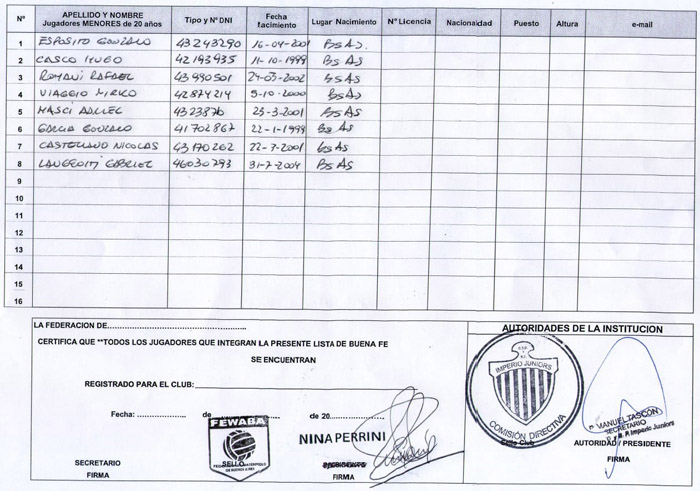 Nº APELLIDO Y NOMBRE Jugadores MENORES de 20 años Tipo y Nº DNI Fecha Nacimiento Lugar Nacimiento Nº Licencia Nacionalidad Puesto Altura e-mail
1 ESPOSITO GONZALO 43243290 16-04-2001 BS AS.
2 CASCO HUGO 42193935 11-10-1999 BS AS
3 ROMANÍ RAFAEL 43990501 24-03-2002 BS AS
4 VIAGGIO MIRKO 42874214 5-10-2000 BS AS
5 MASCI 23-3-2001 BS AS
6 GARCIA GONZALO 41702867 22-1-1999 BS AS
7 CASTELLANO NICOLAS 43170262 22-7-2001 BS AS
8 GABRIEL 46030793 31-7-2004 BS AS
9
10
11
12
13
14
15
16
LA FEDERACION DE
CERTIFICA QUE "TODOS LOS JUGADORES QUE INTEGRAN LA PRESENTE LISTA DE BUENA FE
SE ENCUENTRAN
REGISTRADO PARA EL CLUB:
Fecha: de de 20
FEWABA
SELLO
NINA PERRINI
SECRETARIO
FIRMA
FIRMA
AUTORIDADES DE LA INSTITUCION
IMPERIO JUNIORS
COMISIÓN DIRECTIVA
Sello Club
MANUEL TASCON
SECRETARIO
Imperio Juniors
AUTORIDAD / PRESIDENTE
FIRMA